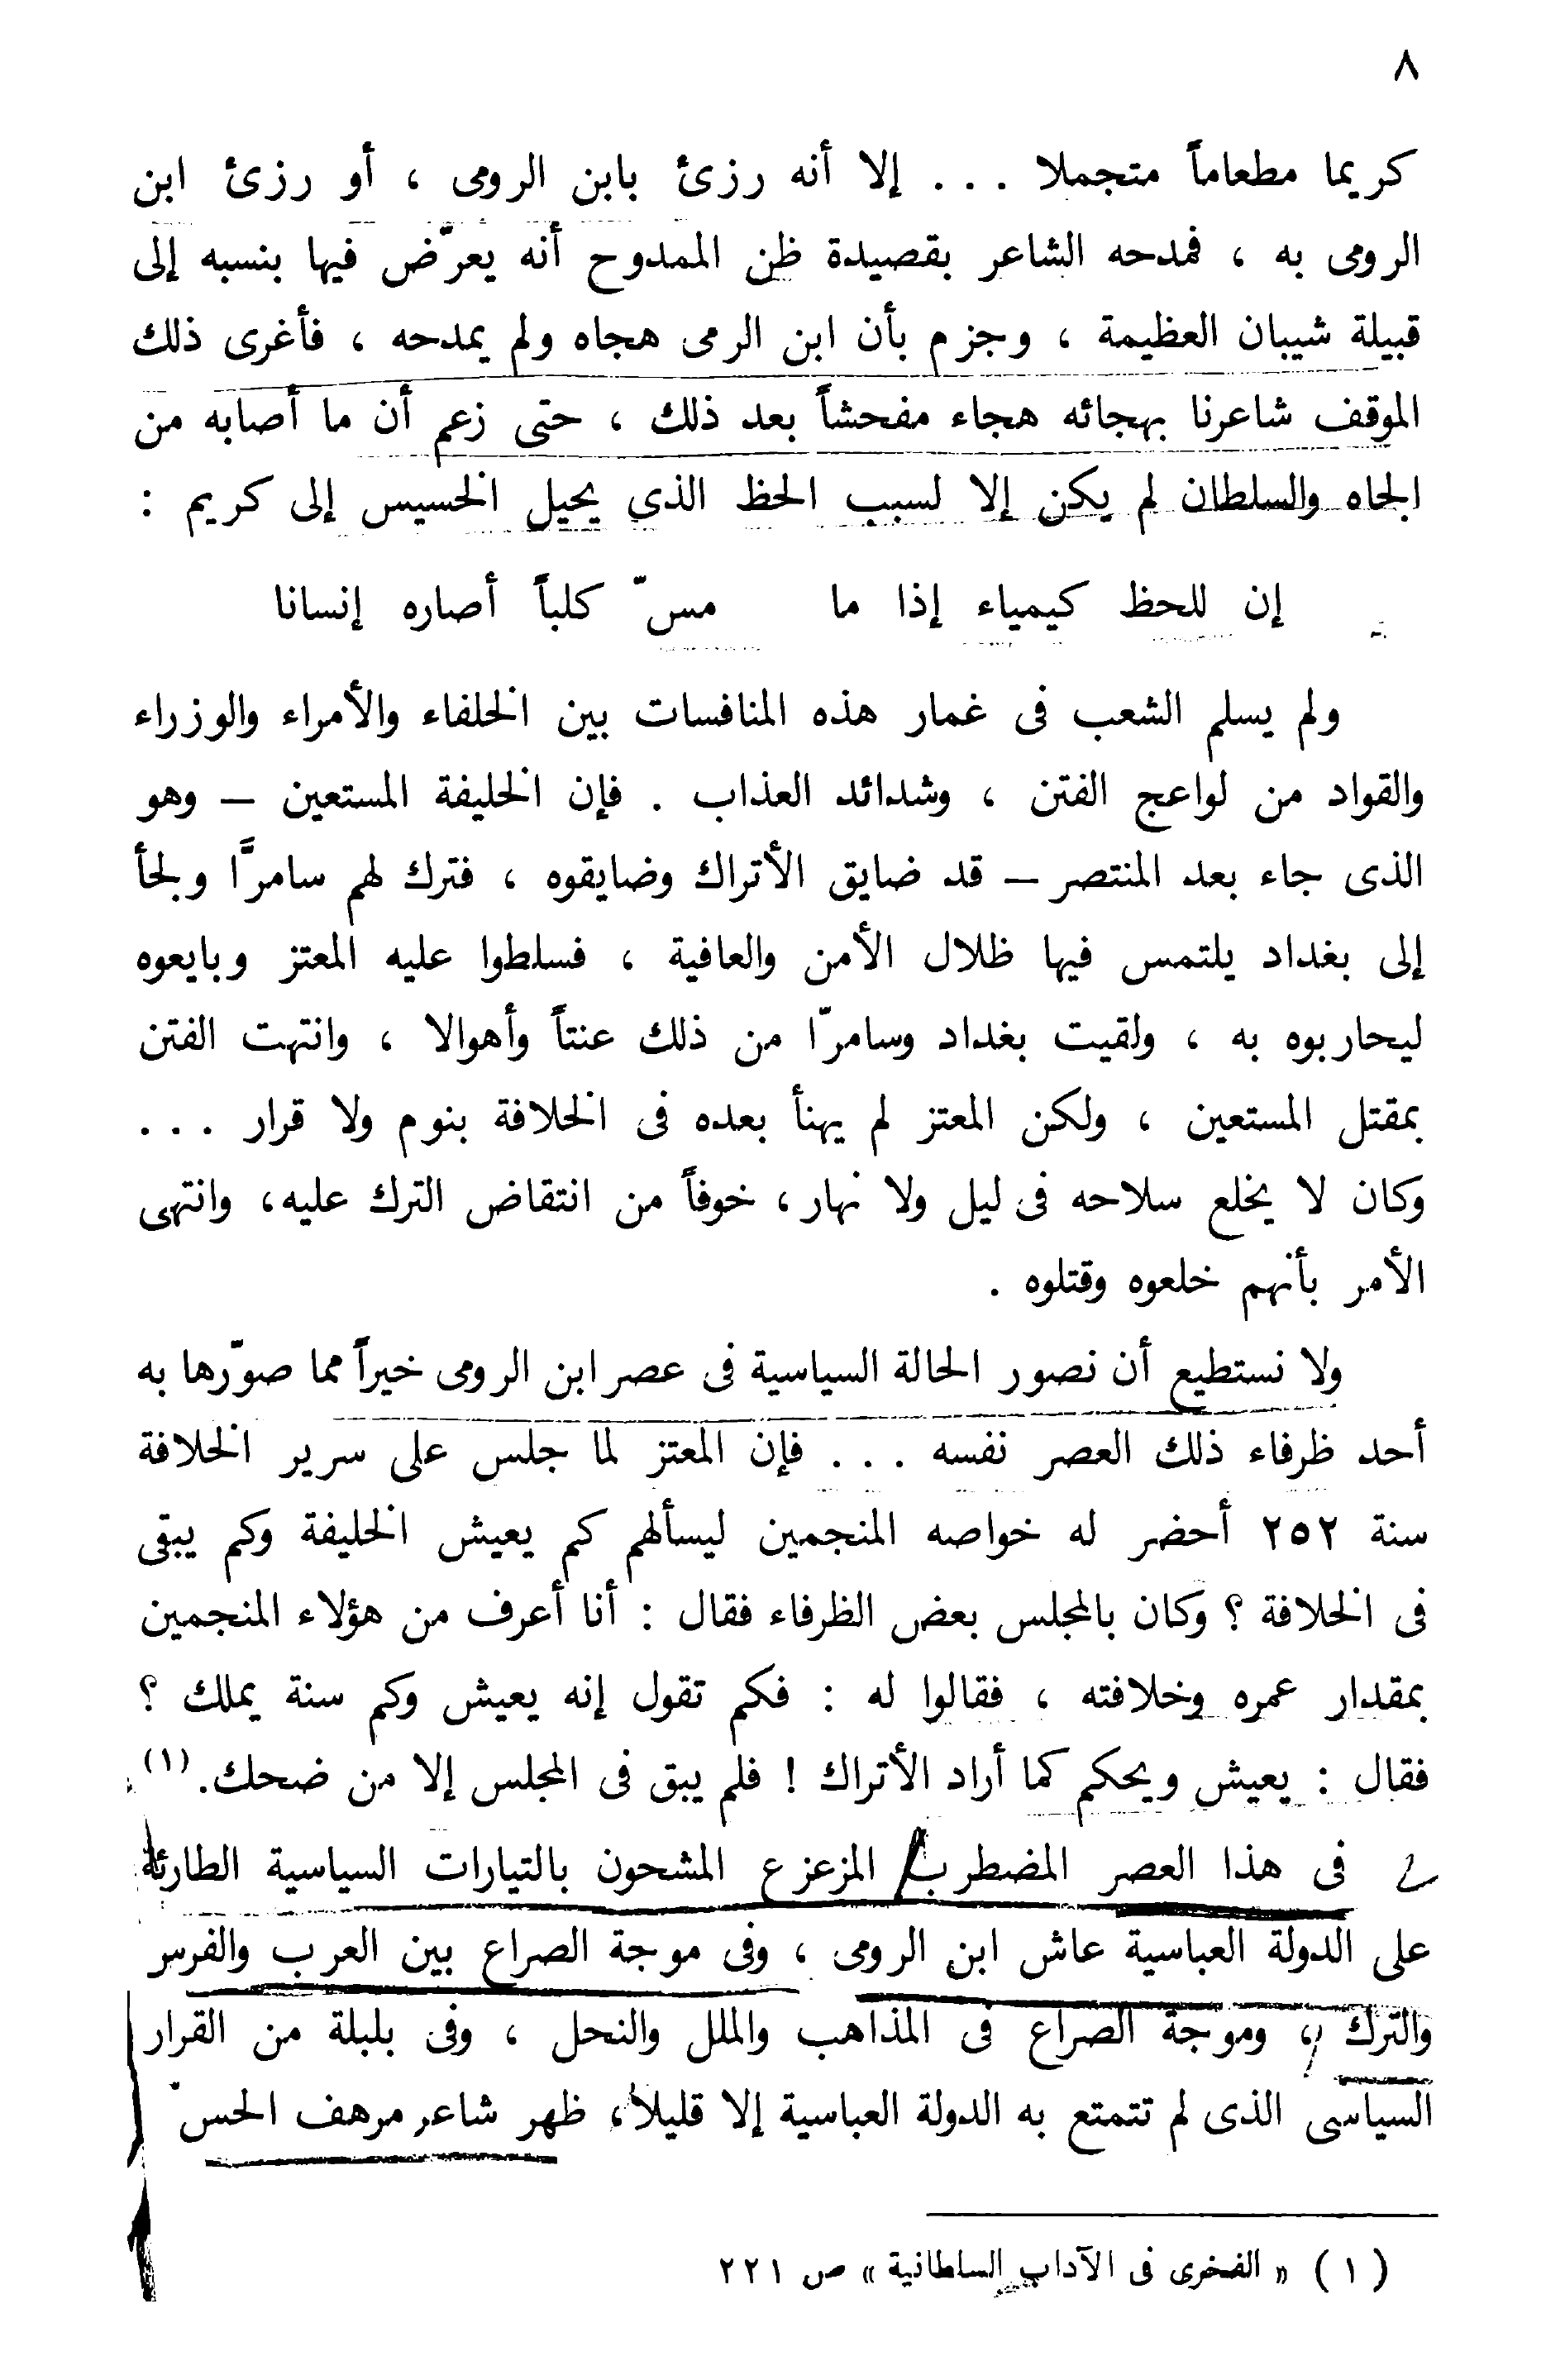 ٨
كريما مطعاماً متجملا . . . إلا أنه رزئ بابن الرومى ، أو رزئ ابن
الرومى به ، فمدحه الشاعر بقصيدة ظن الممدوح أنه يعرّض فيها بنسبه إلى
قبيلة شيبان العظيمة ، وجزم بأن ابن الرمى هجاه ولم يمدحه ، فأغرى ذلك
الموقف شاعرنا بهجائه هجاء مفحشاً بعد ذلك ، حتى زعم أن ما أصابه من
الجاه والسلطان لم يكن إلا لسبب الحظ الذى يحيل الخسيس إلى كريم :
إن للحظ كيمياء إذا ما مسّ كلباً أصاره إنسانا
ولم يسلم الشعب فى غمار هذه المنافسات بين الخلفاء والأمراء والوزراء
والقواد من لواعج الفتن ، وشدائد العذاب . فإن الخليفة المستعين – وهو
الذى جاء بعد المنتصر – قد ضايق الأتراك وضايقوه ، فترك لهم سامرَّا ولجأ
إلى بغداد يلتمس فيها ظلال الأمن والعافية ، فسلطوا عليه المعتز وبايعوه
ليحاربوه به ، ولقيت بغداد وسامرّا من ذلك عنتاً وأهوالا ، وانتهت الفتن
بمقتل المستعين ، ولكن المعتز لم يهنأ بعده فى الخلافة بنوم ولا قرار . . .
وكان لا يخلع سلاحه فى ليل ولا نهار ، خوفاً من انتقاض الترك عليه، وانتهى
الأمر بأنهم خلعوه وقتلوه .
ولا نستطيع أن نصور الحالة السياسية فى عصر ابن الرومى خيراً مما صوّرها به
أحد ظرفاء ذلك العصر نفسه . . . فإن المعتز لما جلس على سرير الخلافة
سنة ٢٥٢ أحضر له خواصه المنجمين ليسألهم كم يعيش الخليفة وكم يبقى
فى الخلافة ؟ وكان بالمجلس بعض الظرفاء فقال : أنا أعرف من هؤلاء المنجمين
بمقدار عمره وخلافته ، فقالوا له : فكم تقول إنه يعيش وكم سنة يملك ؟
فقال : يعيش ويحكم كما أراد الأتراك ! فلم يبق فى المجلس إلا من ضحك. (١)
فى هذا العصر المضطرب المزعزع المشحون بالتيارات السياسية الطارئة
على الدولة العباسية عاش ابن الرومى ، وفى موجة الصراع بين العرب والفرس
والترك ، وموجة الصراع فى المذاهب والملل والنحل ، وفى بلبلة من القرار
السياسى الذى لم تتمتع به الدولة العباسية إلا قليلا ، ظهر شاعر مرهف الحسّ
( ١ ) « الفخرى فى الآداب السلطانية » ص ٢٢١